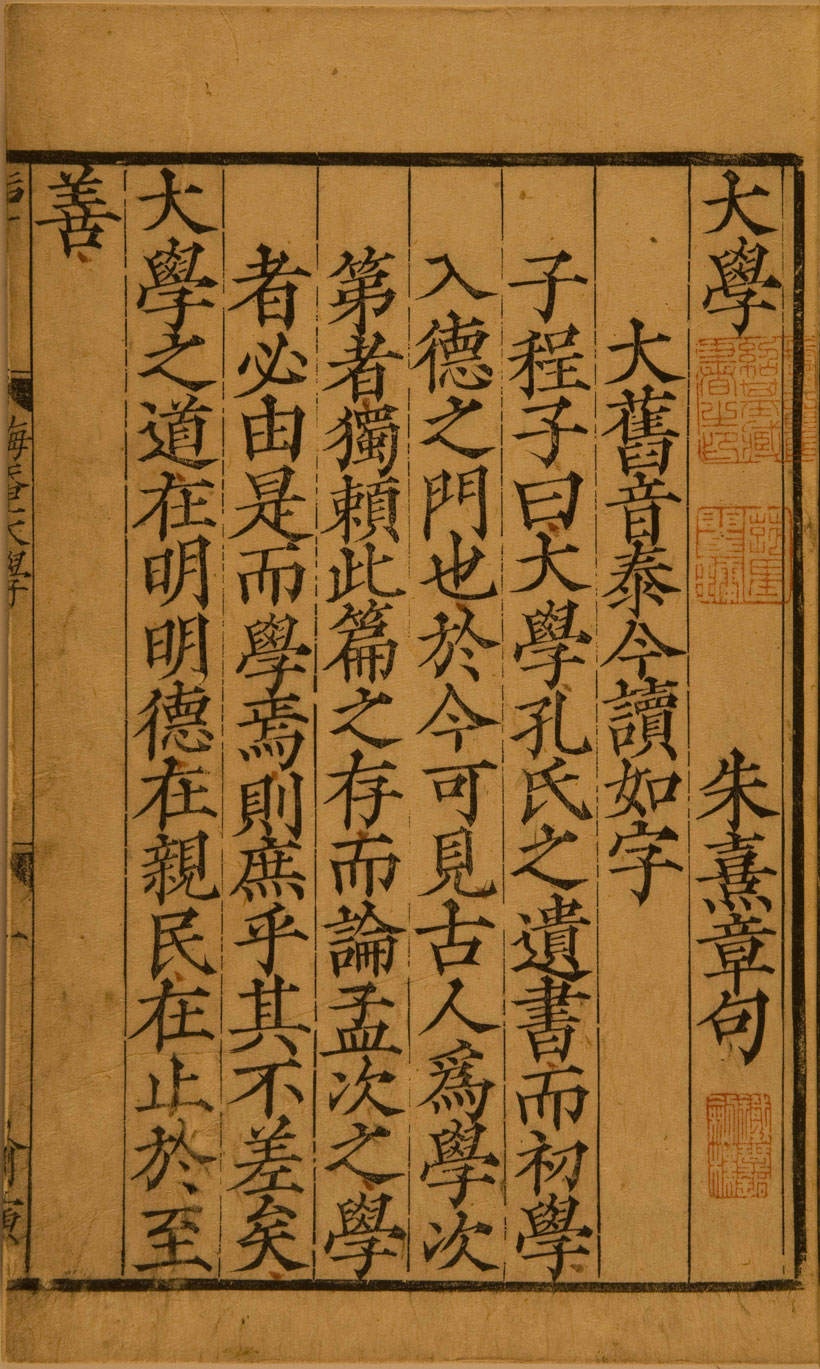 大學
朱熹章句
大舊音泰今讀如字
子程子曰大學孔氏之遺書而初學
入德之門也於今可見古人爲學次
第者獨頼此篇之存而論孟次之學
者必由是而學焉則庶乎其不差矣
大學之道在明明德在親民在止於至
善